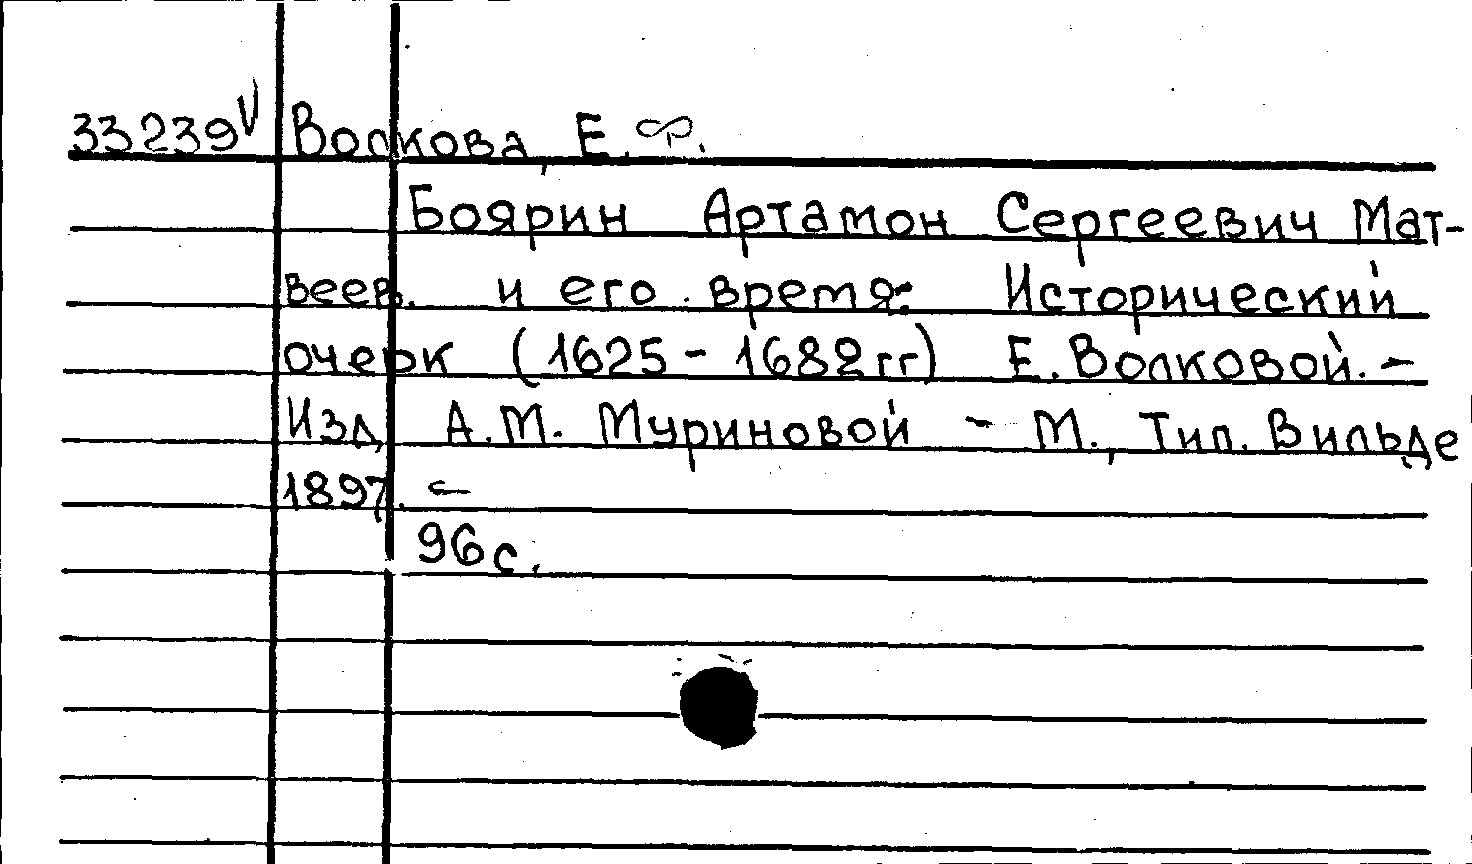 33239 V Волкова, Е. Ф.
Боярин Артамон Сергеевич Мат-
веев. и его время: Исторический
очерк (1625 - 1682 гг) Е. Волковой. -
Изд. А.М. Муриновой - М., Тип. Вильде
1897. -
96 с.